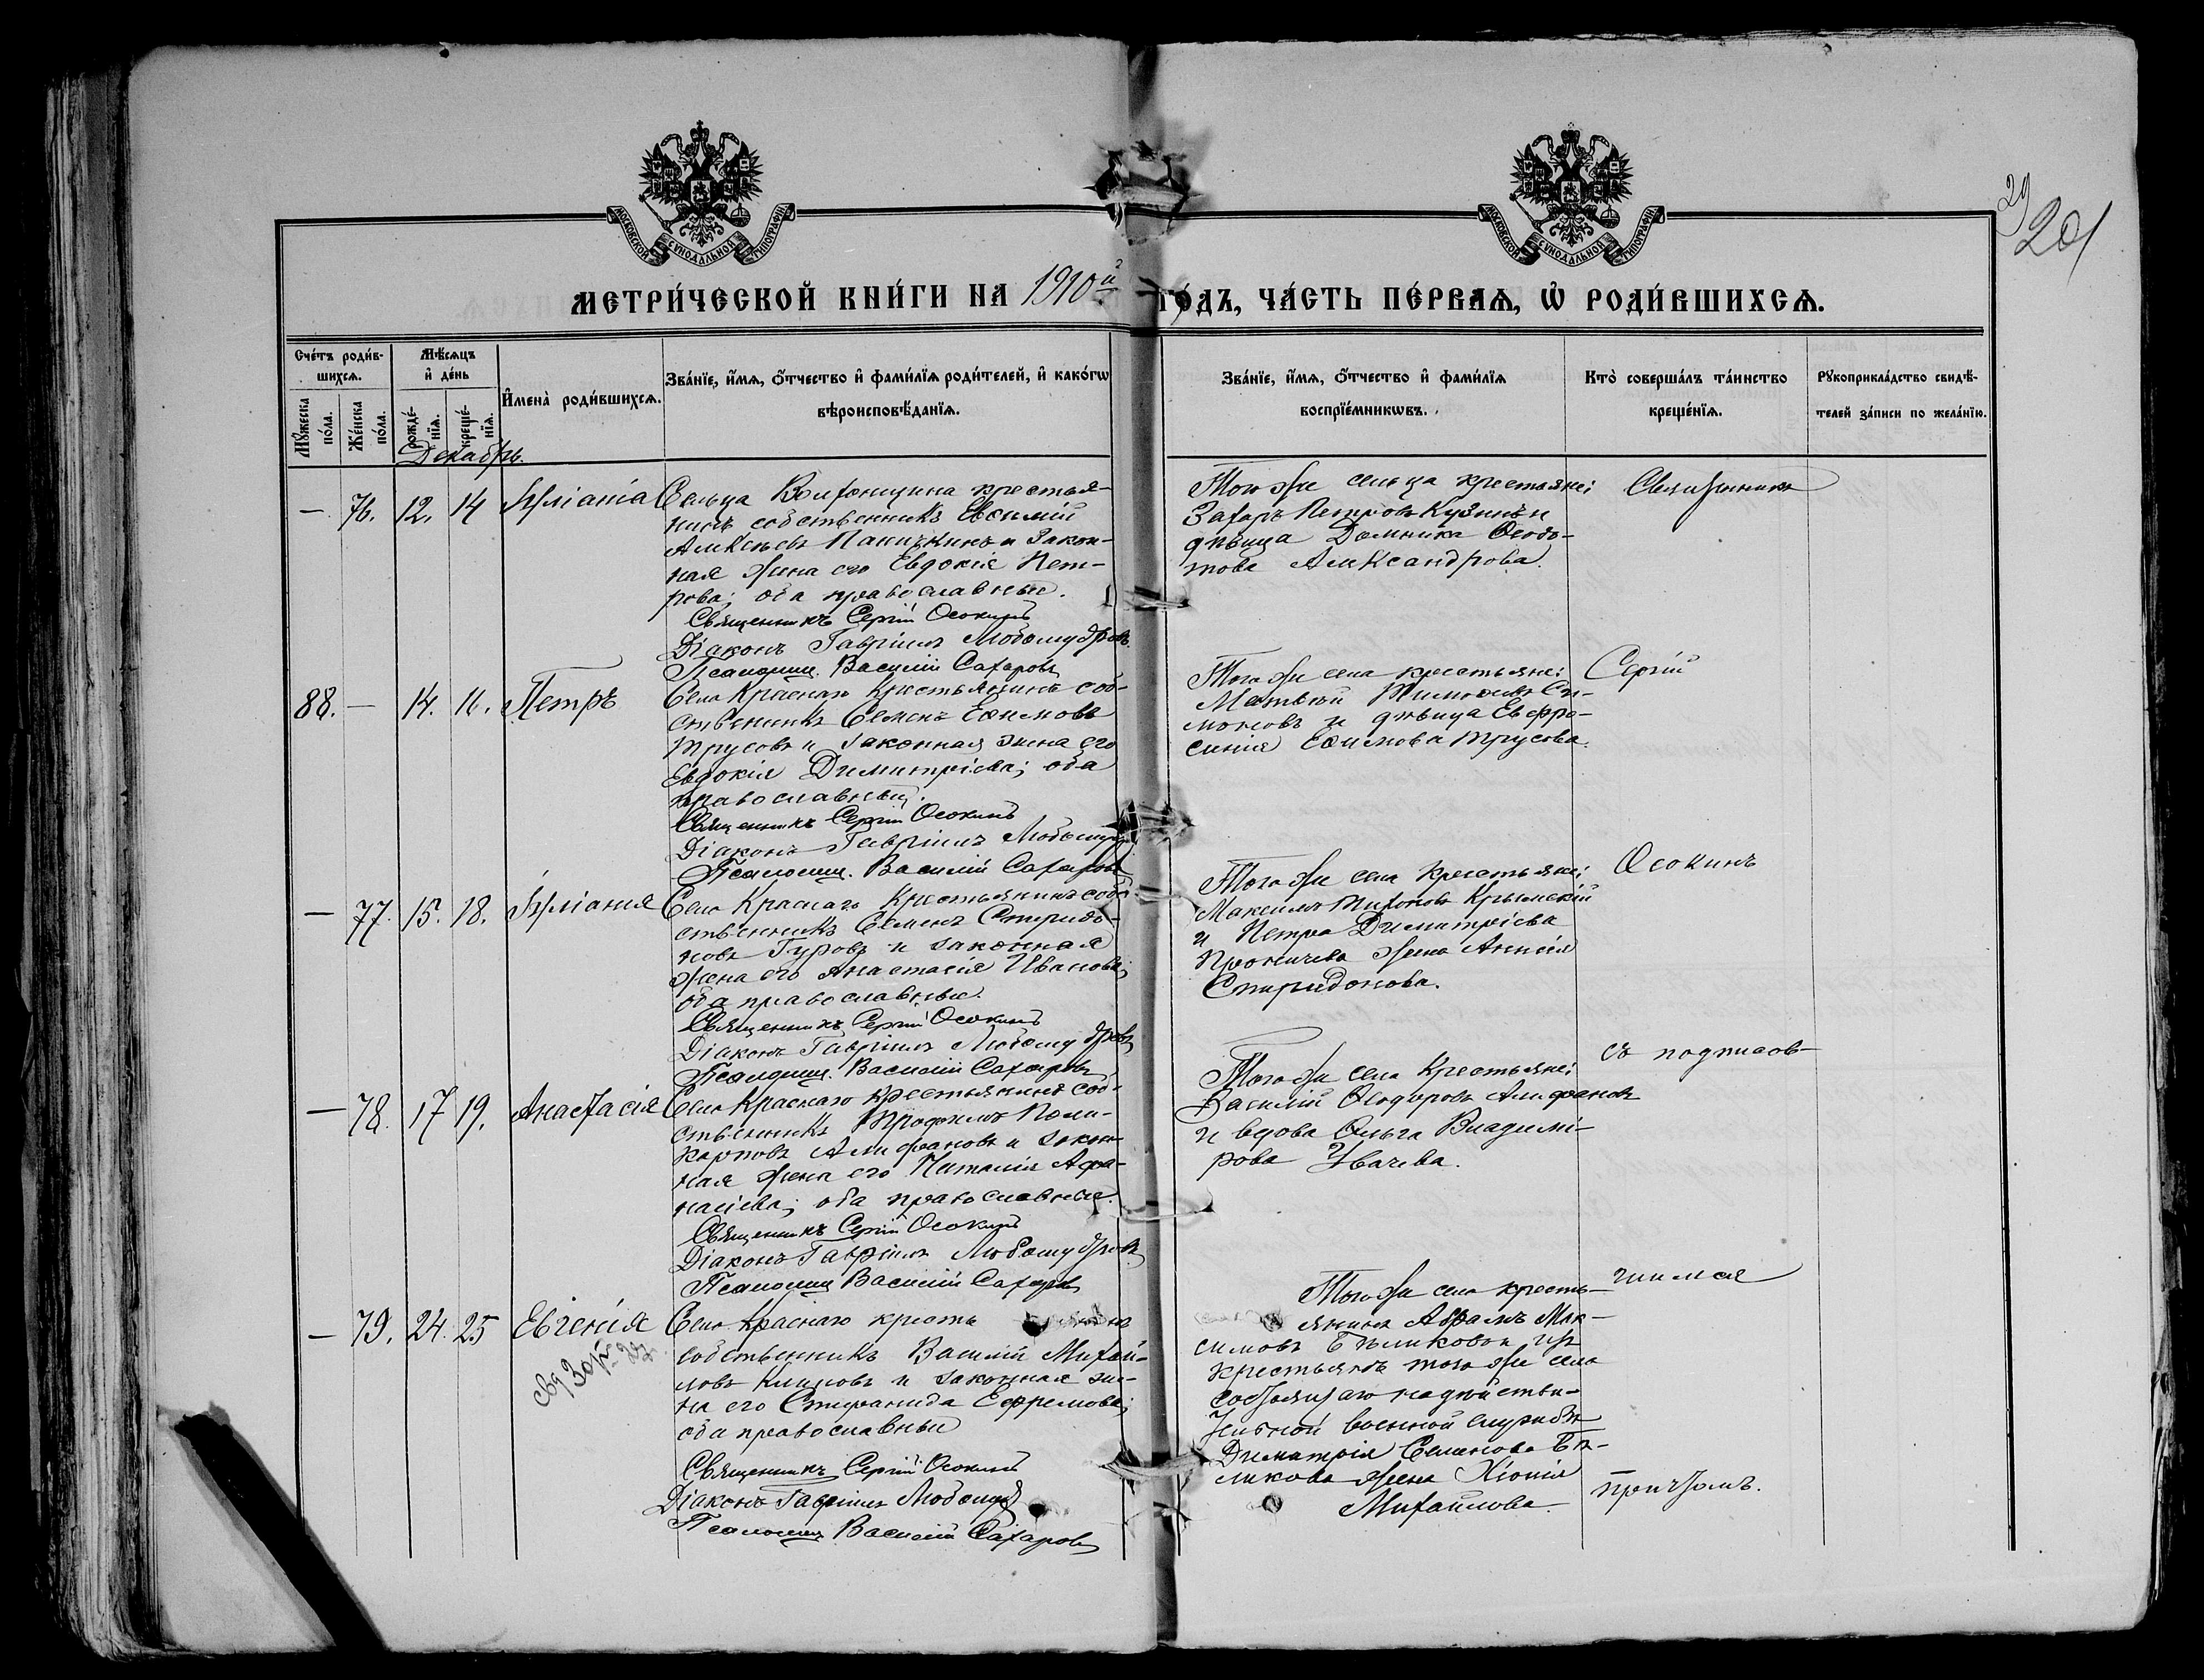 МОСКОВСКОЙ СѴНОДАЛЬНОЙ ТИПОГРАФІИ
МОСКОВСКОЙ СѴНОДАЛЬНОЙ ТИПОГРАФІИ
29
201
МЕТРИ́ЧЕСКОЙ КНИ́ГИ НА 1910й ГО́ДЪ, ЧА́СТЬ ПЕ́РВАѦ, Ѡ҆ РОДИ́ВШИХСѦ.
Сче́тъ роди́в-
шихсѧ.
Мꙋ́жеска по́ла.
Же́нска по́ла.
Мѣ́сѧцъ
и҆ де́нь
рожде́-
нїѧ.
креще́-
нїѧ.
И҆мена̀ роди́вшихсѧ.
Зва́нїе, и҆́мѧ, ѻ҆́тчество и҆ фами́лїѧ роди́телей, и҆ како́гѡ
вѣроисповѣ́данїѧ.
Зва́нїе, и҆́мѧ, ѻ҆́тчество и҆ фами́лїѧ
воспрїе́мникѡвъ.
Кто̀ соверша́лъ та́инство
креще́нїѧ.
Рꙋкоприкла́дство свидѣ́-
телей за́писи по жела́нїю.
Декабрь.
— 76. 12. 14 Іуліанія
Сельца крестья-
нинъ собственникъ Евѳимій
Алексѣевъ Паничкинъ и закон-
ная жена его Евдокія Пет-
рова; оба православные.
Священникъ Сергій Осокинъ
Діаконъ Гавріилъ Любомудровъ
Псаломщ. Василій Сахаровъ
Того же сельца крестьяне:
Захаръ Петровъ Кузинъ и
дѣвица Домника Ѳеодо-
това Александрова.
Священникъ
88. — 14. 16. Петръ
Села Краснаго крестьянинъ соб-
ственникъ Семенъ Ефимовъ
Трусовъ и законная жена его
Евдокія Димитріева; оба
православные.
Священникъ Сергій Осокинъ
Діаконъ Гавріилъ Любомуд
Псаломщ. Василій Сахаровъ
Того же села крестьяне:
Матвей Тимоѳеевъ Си-
моновъ и дѣвица Евфро-
синія Ефимова Трусова.
Сергій
— 77. 15. 18. Іуліанія
Села Краснаго крестьянинъ соб-
ственникъ Семенъ Спиридо-
новъ Гуровъ и законная
жена его Анастасія Иванова;
оба православные.
Священникъ Сергій Осокинъ
Діаконъ Гавріилъ Любомудровъ
Псаломщ. Василій Сахаровъ
Того же села крестьяне:
Максимъ Тихоновъ Крымскій
и Петра Димитріева
Проничева жена Анисія
Спиридонова.
Осокинъ
— 78. 17 19. Анастасія
Села Краснаго крестьянинъ соб-
ственникъ Трофимъ Поли-
карповъ Алифановъ и закон-
ная жена его Наталія Афа-
насіева; оба православные.
Священникъ Сергій Осокинъ
Діаконъ Гавріилъ Любомудровъ
Псаломщ Василій Сахаровъ
Того же села крестьяне:
Василій Ѳеодоровъ Алифановъ
и вдова Ольга Владимі-
рова Ивачева.
съ подписав-
— 79. 24. 25 Евгенія
Села Краснаго кресть
собственникъ Василій Михай-
ловъ Климовъ и законная же-
на его Стефанида Ефремова;
оба православные
Священникъ Сергій Осокинъ
Діаконъ Гавріилъ Любомуд
Псаломщ Василій Сахаровъ
Того же села кресть-
янинъ Абрамъ Мак-
симовъ Бѣликовъ и
крестьянъ того же села
состоящаго на дѣйстви-
тельной военной службѣ
Димитрія Семенова Бѣ-
ликова жена Хіонія
Михайлова.
шимся
причтомъ.